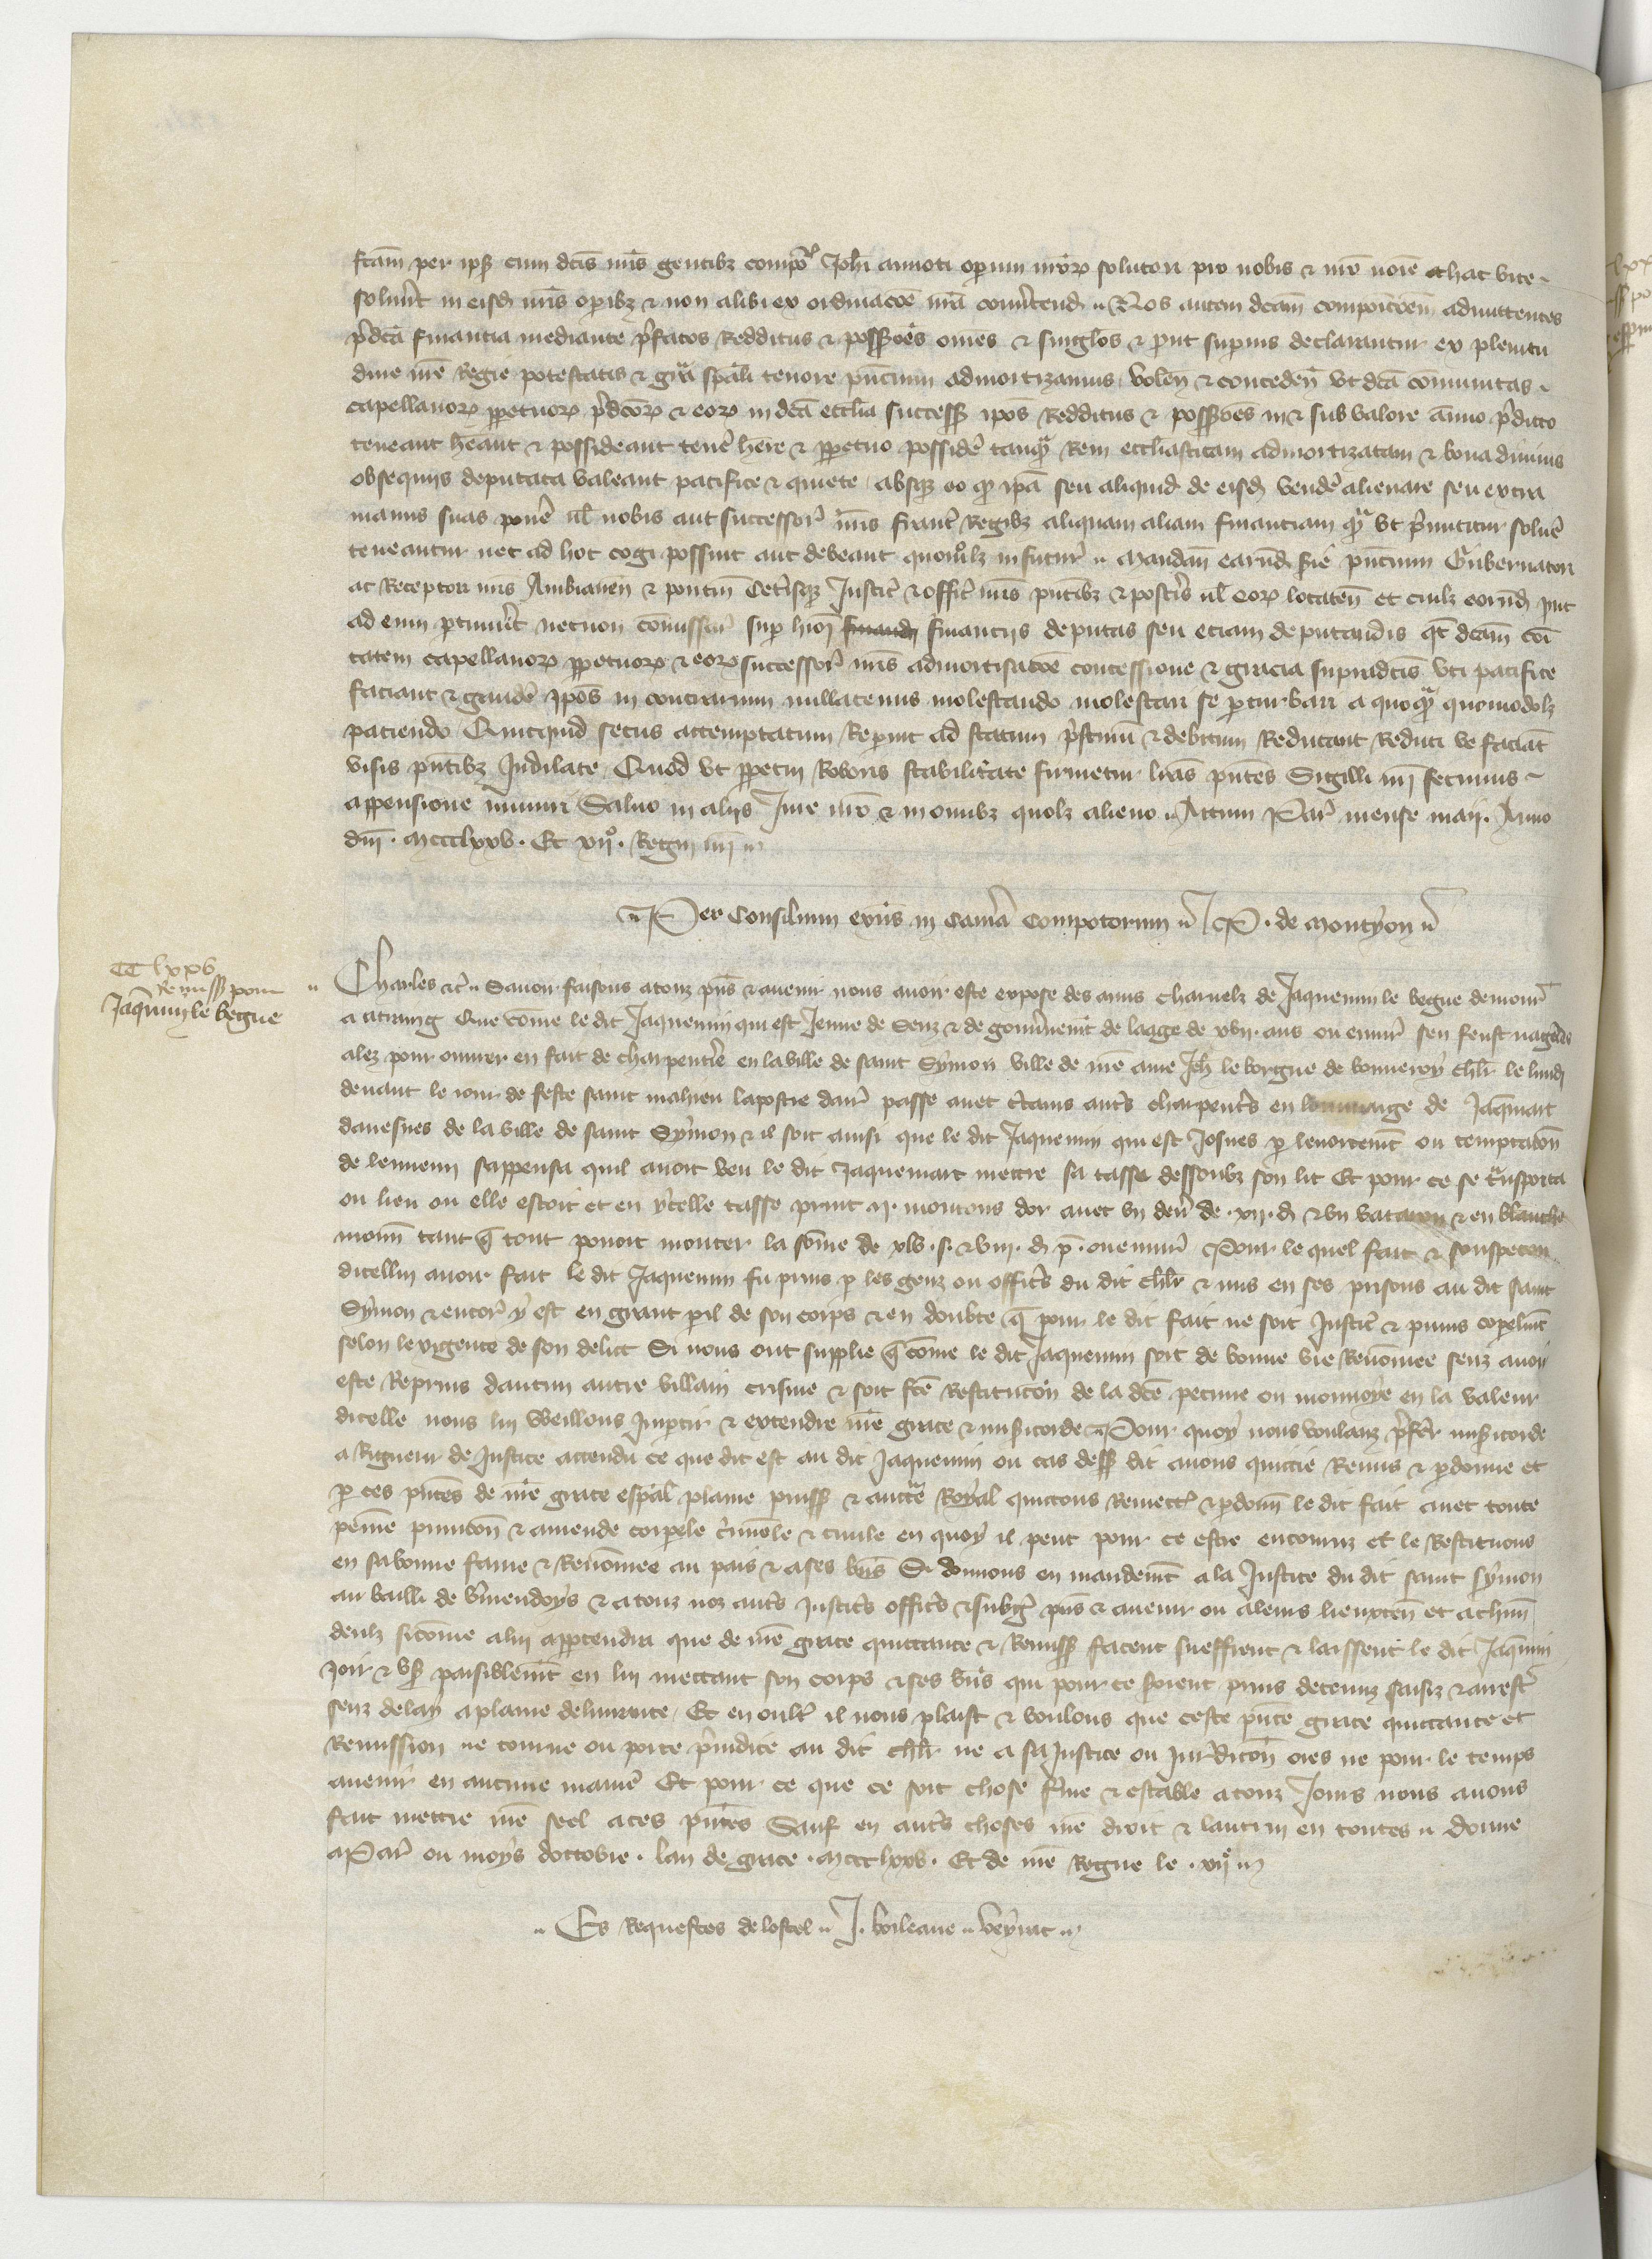 fcam per ipos cum dcis nris gentibz compo Johi amioti operum nrorz solutori pro nobis & nro noie ac hac vice
soluit in eisd nris opibz & non alibi ex ordinacoe nra convtend Nos autem dcam compoicoem admittentes
pdca financia mediante pfatos Redditus & possoes omes & singlos & put supius declarantur ex plenitu
dine nre Regie potestatis & gra spali tenore pncium admortizamus volen & conceden vt dca comunitas
capellanorz ppetuorz pdcorz & eorz in dca ecclia success ipos Redditus & possoes in & sub valore annuo pdicto
teneant heant & possideant tene here & ppetuo posside tanq Rem eccliasticam admortizatam & bona diuinis
obsequiis deputata valeant pacifice & quiete absqz eo q ipa seu aliquid de eisd vende alienare seu extra
manus suas pone ul nobis aut successor nris franc Regibz aliquam aliam financiam q vt pmittitur solue
teneantur nec ad hoc cogi possint aut debeant quomolz in futur Mandan earund serie pncium Gubernatori
ac Receptori nris Ambianen & pontiu Ceterisqz Justic & offic nris pntibz & posteris ul eorz locaten et cuilz eorund put
ad eum ptinuit necnon comissar sup hioi financ financiis deputas seu etiam deputandis qt dcam coi
tatem capellanorz ppetuorz & eorz successor nris admortisacoe concessione & gracia supradcis vti pacifice
faciant & gaude ipos in contrarium nullatenus molestando molestari se pturbari a quoq quomodolz
paciendo Quicquid secus attemptatum Repint ad statum pstinu & debitum Reducant Reduci ve faciat
visis pntibz Indilate Quod vt ppetui Roboris stabilitate firmetur lras pntes Sigilli nri fecimus
appensione muniri Saluo in aliis Jure nro & in omibz quolz alieno Actum Par mense maii Anno
dni mccclxxv Et xijo Regni nri

Per Consilium exns in Cama Compotorum P. de Montyon

CC lxxv
Remiss pour
Jaqmin le begue

Charles etc Sauoir faisons a touz pns & auenir nous auoir este expose des amis charnelz de Jaquemin le begue demour
a Que come le dit Jaquemin qui est Jeune de Senz & de gouuernemt de laage de xvij ans ou enuir sen feust nagueres
alez pour ouurer en fait de charpenterie en la ville de saint Symon ville de nre ame Jeh le borgne de bonneroy chlr le lundi
deuant le iour de feste saint mahieu lapostre darr passe auec ctains autres charpentrs en louuraige de Jaqmart
dauesnes de la ville de saint Symon & il soit ainsi que le dit Jaquemin qui est Josnes p lenortemt ou temptacon
de lennemi sappensa quil auoit veu le dit Jaquemart mettre sa tasse dessoubz son lit Et pour ce se tnsporta
ou lieu ou elle estoit et en ycelle tasse print ij moutons dor auec vn den de xij d & vn & en blanche
monn tant q tout pouoit monter la some de xlv s & viij d p ou enuir Pour le quel fait & souspecon
dicellui auoir fait le dit Jaquemin fu prins p les genz ou officrs du dit chlr & mis en ses prisons au dit saint
Symon & encor y est en grant pil de son corps & en doubte q pour le dit fait ne soit Justic & puniz copelmt
selon lexigence de son delict Si nous ont supplie q come le dit Jaquemin soit de bonne vie Renomee senz auoir
este Reprins daucun autre villain crisme & soit fce Restitucon de la dce pecune ou monnoye en la valeur
dicelle nous lui Weillons Impartir & extendre nre grace & misicorde Pour quoy nous voulanz pferer misicorde
a Rigueur de Justice attendu ce que dit est au dit Jaquemin ou cas dess dit auons quittie Remis & pdonne et
p ces pntes de nre grace espal plaine puiss & aucte Royal quittons Remett & pdon le dit fait auec toute
peine punicon & amende corpele criminele & ciuile en quoy il peut pour ce estre encouruz et le Restituons
en sa bonne fame & Renomee au pais & a ses bns Si donnons en mandemt a la Justice du dit saint Symon
au bailli de Vermendoys & a touz noz autrs Justicrs officrs & subgez pns & auenir ou a leurs lieuxten et a chun
deulz sicome a lui apptendra que de nre grace quittance & Remiss facent sueffrent & laissent le dit Jaqmin
Joir & vser paisiblemt en lui mettant son corps & ses bns qui pour ce seroient prins detenuz saisiz & arrest
senz delay a plaine deliurance Et en oultr il nous plaist & voulons que ceste pnte grace quittance et
Remission ne tourne ou porte preiudice au dit chlr ne a sa Justice ou Jurdicon ores ne pour le temps
auenir en aucune manie Et pour ce que ce soit chose ferme & estable a touz Jours nous auons
fait mettre nre seel a ces pntes Sauf en autrs choses nre droit & lautrui en toutes Donne
a Par ou moys doctobre lan de grace mccclxxv Et de nre Regne le xije

Es Requestes de lostel J. boileaue veyrat